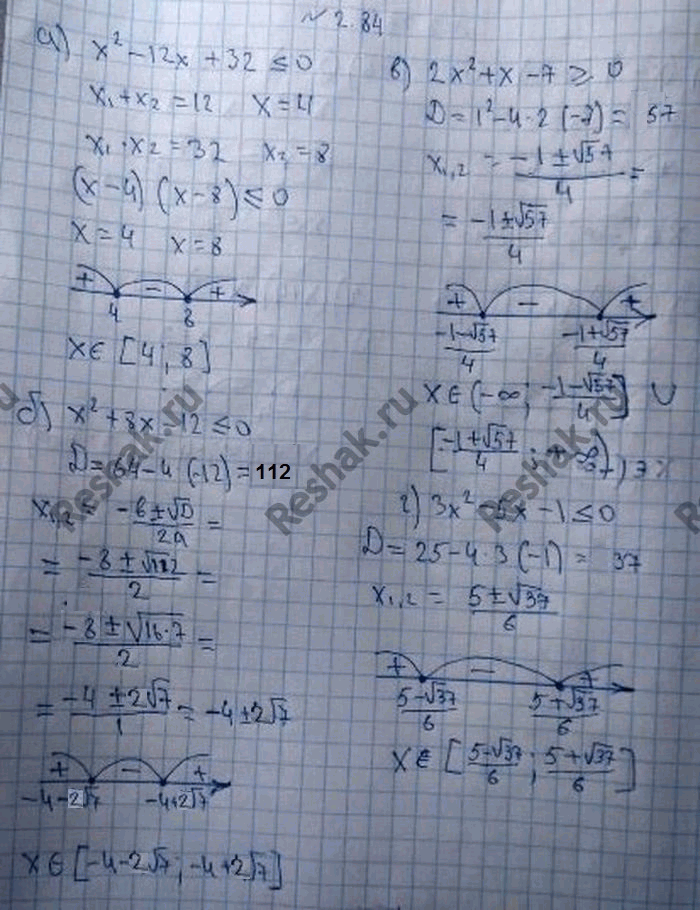 № 2.84
а) x² - 12x + 32 ≤ 0
x₁ + x₂ = 12   x = 4
x₁ · x₂ = 32   x₂ = 8
(x - 4) (x - 8) ≤ 0
x = 4   x = 8
+ - +
4 8
x ∈ [4; 8]
б) x² + 8x - 12 ≤ 0
D = 64 - 4 (-12) = 112
x₁,₂ = (-b ± √D)/2a =
= (-8 ± √112)/2 =
= (-8 ± √16·7)/2 =
= (-4 ± 2√7)/1 = -4 ± 2√7
+ - +
-4-2√7 -4+2√7
x ∈ [-4-2√7; -4+2√7]
в) 2x² + x - 7 ≥ 0
D = 1² - 4 · 2 (-7) = 57
x₁,₂ = (-1 ± √57)/4 =
= (-1 ± √57)/4
+ - +
(-1-√57)/4 (-1+√57)/4
x ∈ (-∞; (-1-√57)/4] ∪
[(-1+√57)/4; +∞)
г) 3x² - 5x - 1 ≤ 0
D = 25 - 4 · 3 (-1) = 37
x₁,₂ = (5 ± √37)/6
+ - +
(5-√37)/6 (5+√37)/6
x ∈ [(5-√37)/6; (5+√37)/6]
Reshak.ru
Reshak.ru
Reshak.ru